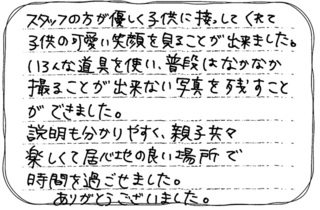 スタッフの方が優しく子供に接してくれて
子供の可愛い笑顔を見ることが出来ました。
いろんな道具を使い、普段はなかなか
撮ることが出来ない写真を残すこと
ができました。
説明も分かりやすく、親子共々
楽しくて居心地の良い場所で
時間を過ごせました。
ありがとうございました。